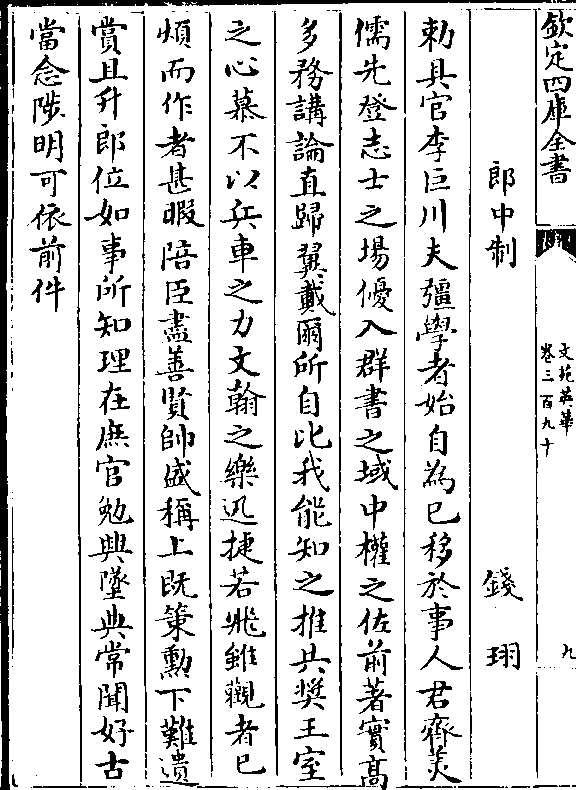 欽定四庫全書
文苑英華
卷三百九十
九
郎中制
錢珝
勅具官李巨川夫彊學者始自為已移於事人君齊羙
儒先登志士之場優入群書之域中權之佐前著實髙
多務講論直歸翼戴爾所自比我能知之推共奬王室
之心慕不以兵車之力文翰之樂迅捷若飛雖觀者已
煩而作者甚暇陪臣盡善賢帥盛稱上既䇿勲下難遺
賞且升郎位如事所知理在庶官勉興墜典常聞好古
當念陟明可依前件